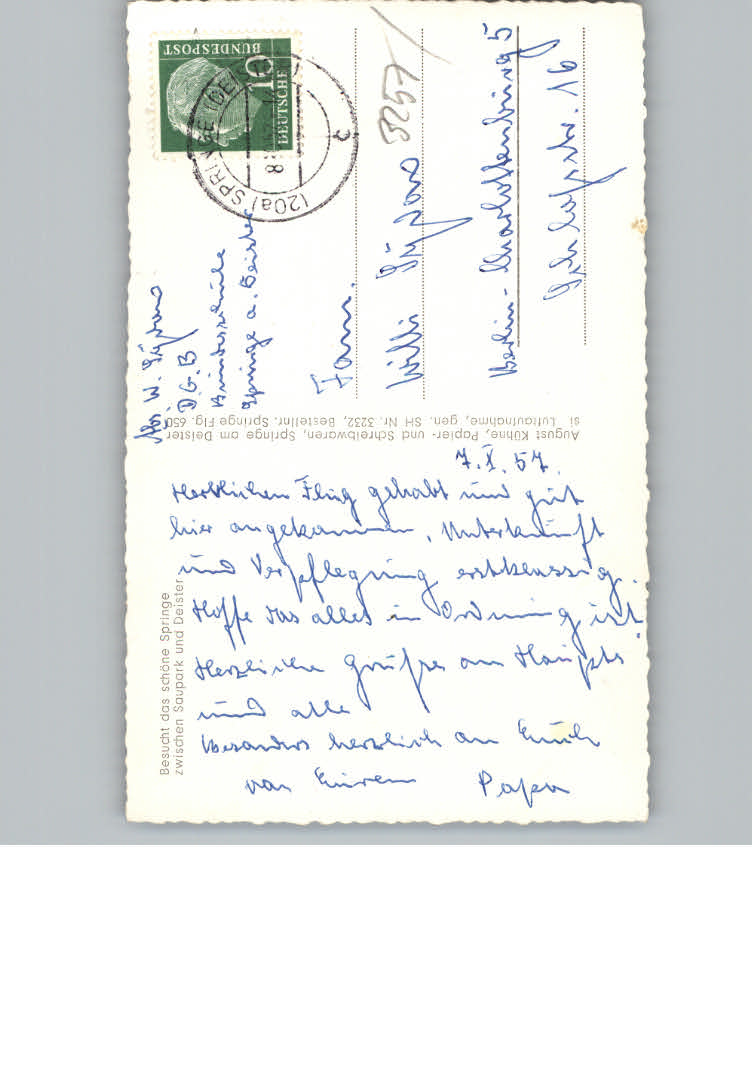 7.X.57.
Herrlichen Flug gehabt und gut
hier angekommen, Unterkunft
und Verpflegung erstklassig.
Hoffe das alles in Ordnung ist
Herzliche Grüße an
und alle
Besonders herzlich an Euch
von Eurem Papa
Abs. W.
D.G.B
Bundesschule
Springe a. Deister
Fam.
Willi
Berlin-Charlottenburg 5
16
3257
DEUTSCHE
BUNDESPOST
10
(20a) SPRINGE (DEISTER)
8
c
August Kühne, Papier- und Schreibwaren, Springe am Deister
si Luftaufnahme, gen. SH Nr. 3232, Bestellnr. Springe Flg. 650
Besucht das schöne Springe
zwischen Saupark und Deister